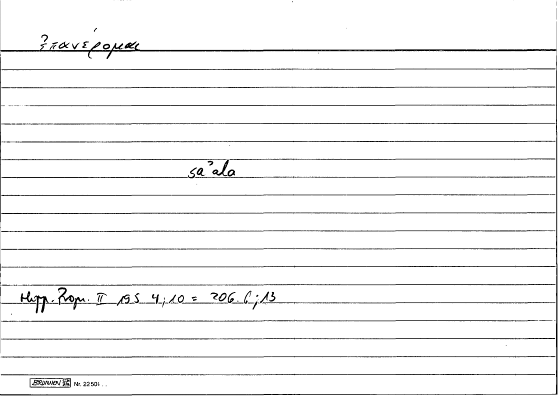 ἐπανέρομαι
saʾala
Hipp. Progn. II 195 4; 10 = 206. 6; 13
BRUNNEN Nr. 22 501